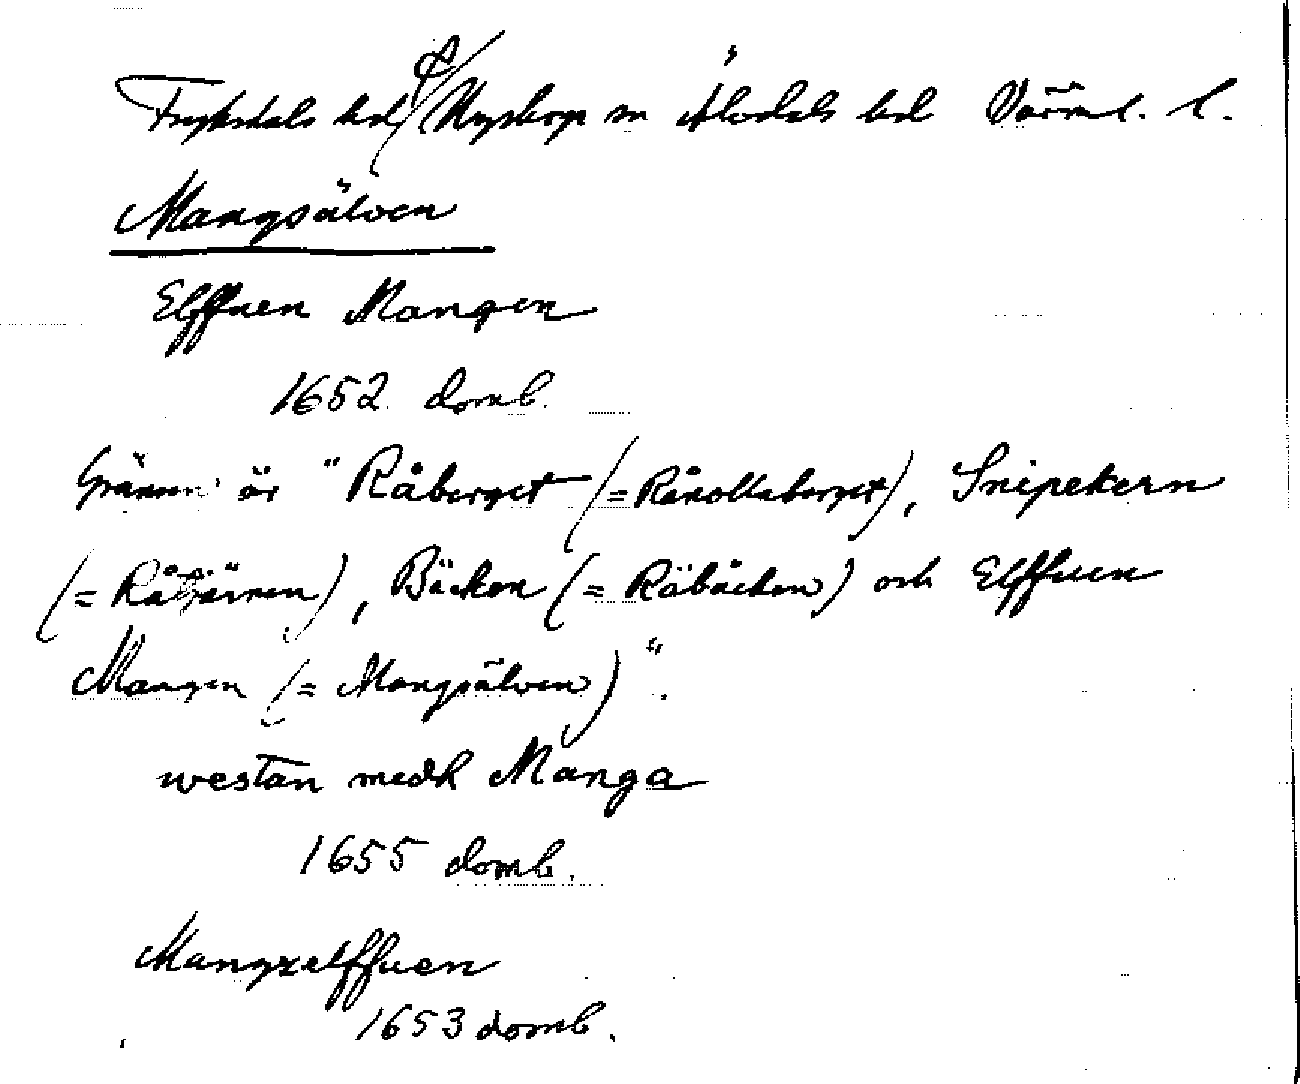 Fryksdals hd & Nyskoga sn Älvdals hd Värml. l.
Mangsälven
Elffuen Mangen
1652 domb.
Gränsen är "Råberget (=Råkollsberget), Snipekern
(=Råtjärnen), Bäcken (=Råbäcken) och Elffuen
Mangen (= Mangsälven)".
westan medh Manga
1655 domb.
Mangzelffuen
1653 domb.